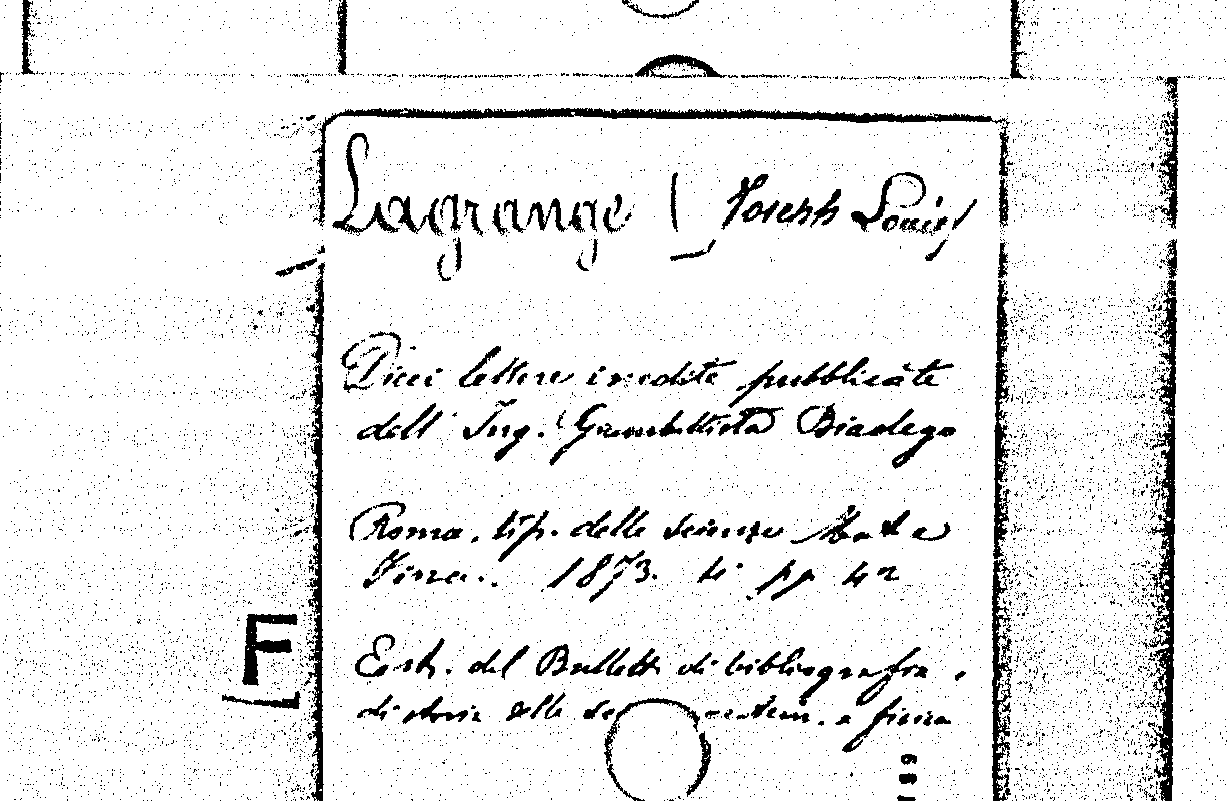 Lagrange (Joseph Louis)
Dieci lettere inedite pubblicate
dall' Ing. Giambattista Biadego
Roma, tip. delle scienze Mat. e
Fisse.. 1873. di pp 4º
F
Estr. del Bullett. di bibliografia.
di storia delle sc matem. e fisica
189